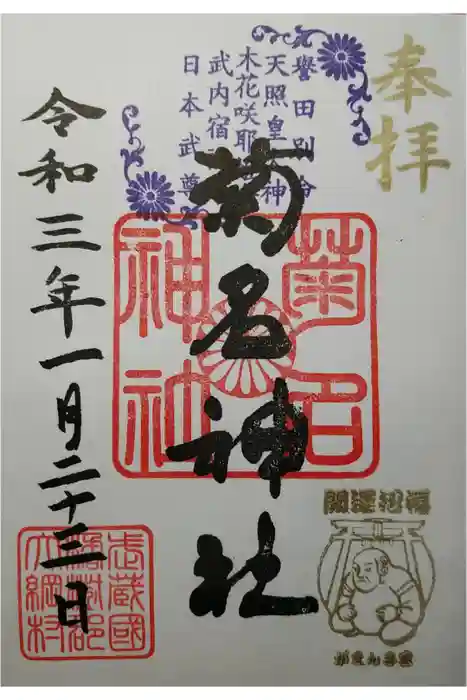 奉拝
譽田別命
天照皇大神
木花咲耶
武内宿
日本武尊
菊名神社
菊名
神社
令和三年一月二十三日
武蔵國
橘樹郡
大綱村
開運招福
がまんさま